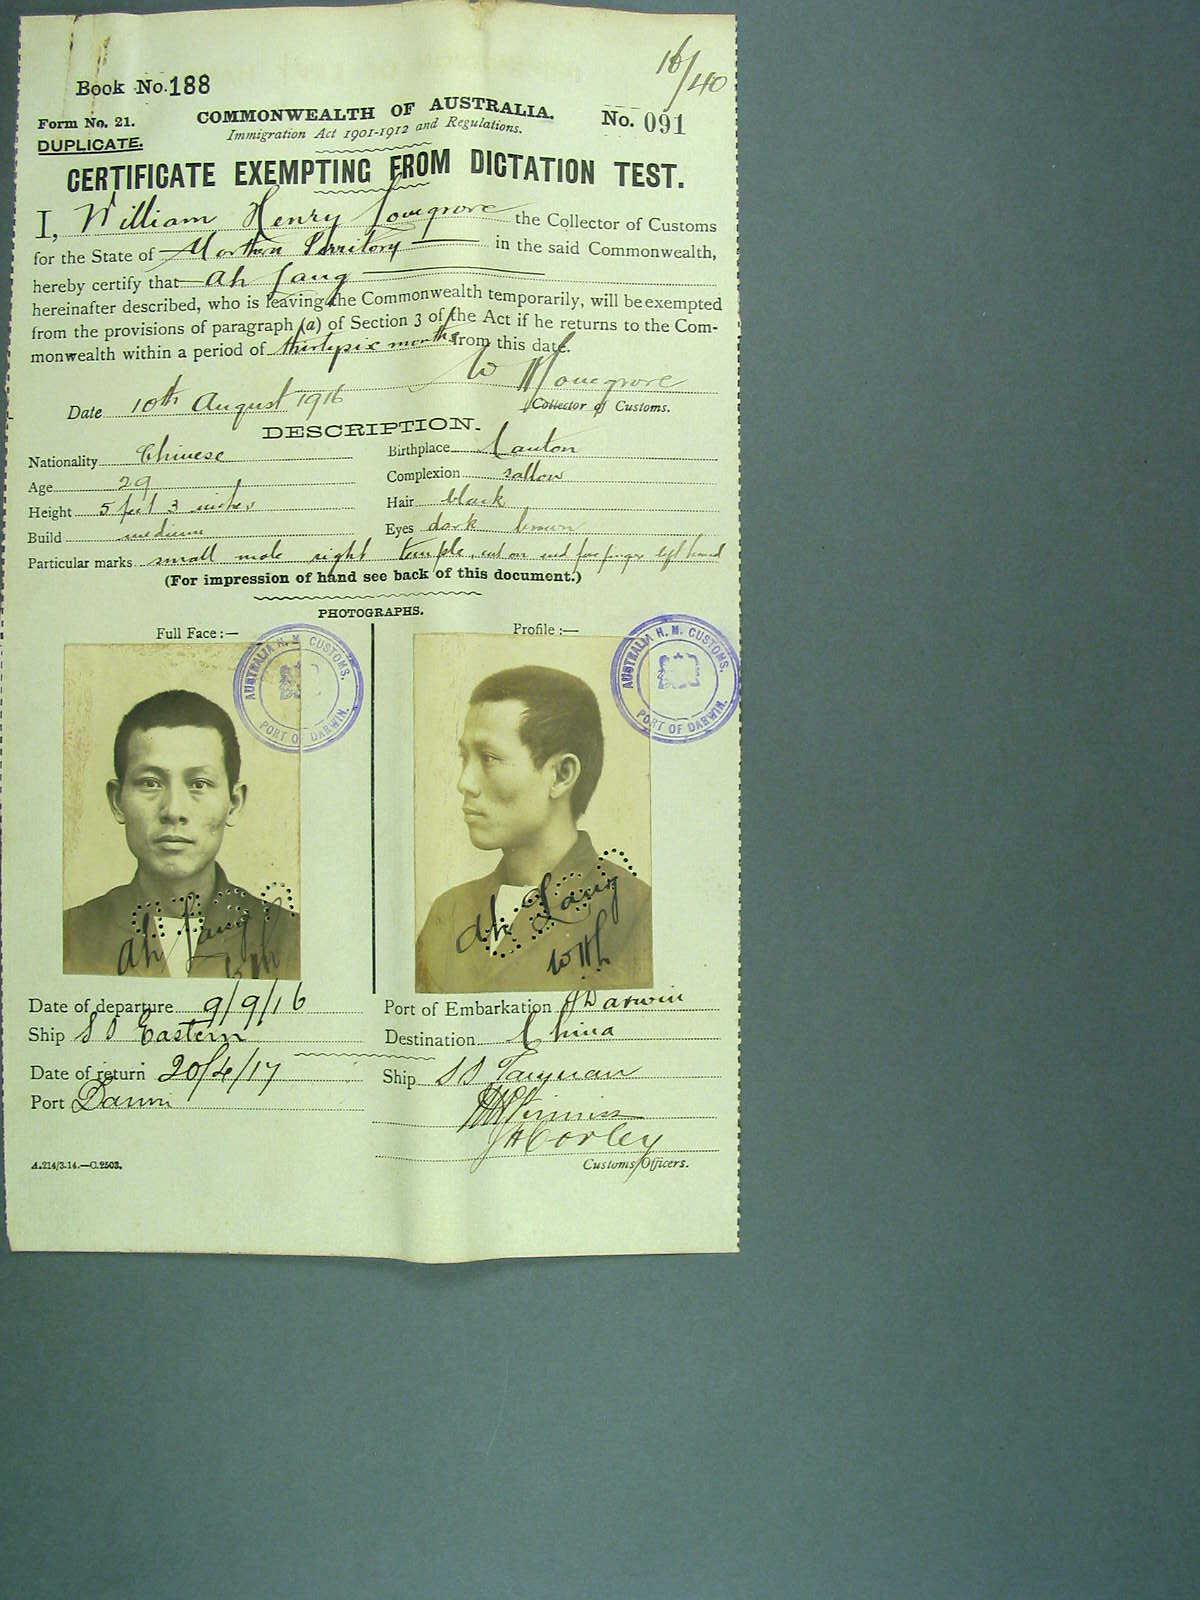 16/40
Book No. 188
Form No. 21.
COMMONWEALTH OF AUSTRALIA.
No. 091
DUPLICATE.
Immigration Act 1901-1912 and Regulations.
CERTIFICATE EXEMPTING FROM DICTATION TEST.
I, William Henry Lovegrove the Collector of Customs
for the State of Northern Territory in the said Commonwealth,
hereby certify that Ah Lang
hereinafter described, who is leaving the Commonwealth temporarily, will be exempted
from the provisions of paragraph (a) of Section 3 of the Act if he returns to the Com-
monwealth within a period of thirtysix months from this date.
W H Lovegrove
Date 10th August 1916
Collector of Customs.
DESCRIPTION.
Nationality Chinese
Birthplace Canton
Age 29
Complexion sallow
Height 5 feet 3 inches
Hair black
Build medium
Eyes dark brown
Particular marks small mole right temple, cut on end fore finger left hand
(For impression of hand see back of this document.)
PHOTOGRAPHS.
Full Face :—
Profile :—
AUSTRALIA H. M. CUSTOMS.
PORT OF DARWIN.
AUSTRALIA H. M. CUSTOMS.
PORT OF DARWIN.
Ah Lang
WHL
Ah Lang
WHL
Date of departure 9/9/16
Port of Embarkation Darwin
Ship SS Eastern
Destination China
Date of return 20/4/17
Ship SS Taiyuan
Port Darwin
JHCorley
A.214/3.14.—C.2503.
Customs Officers.